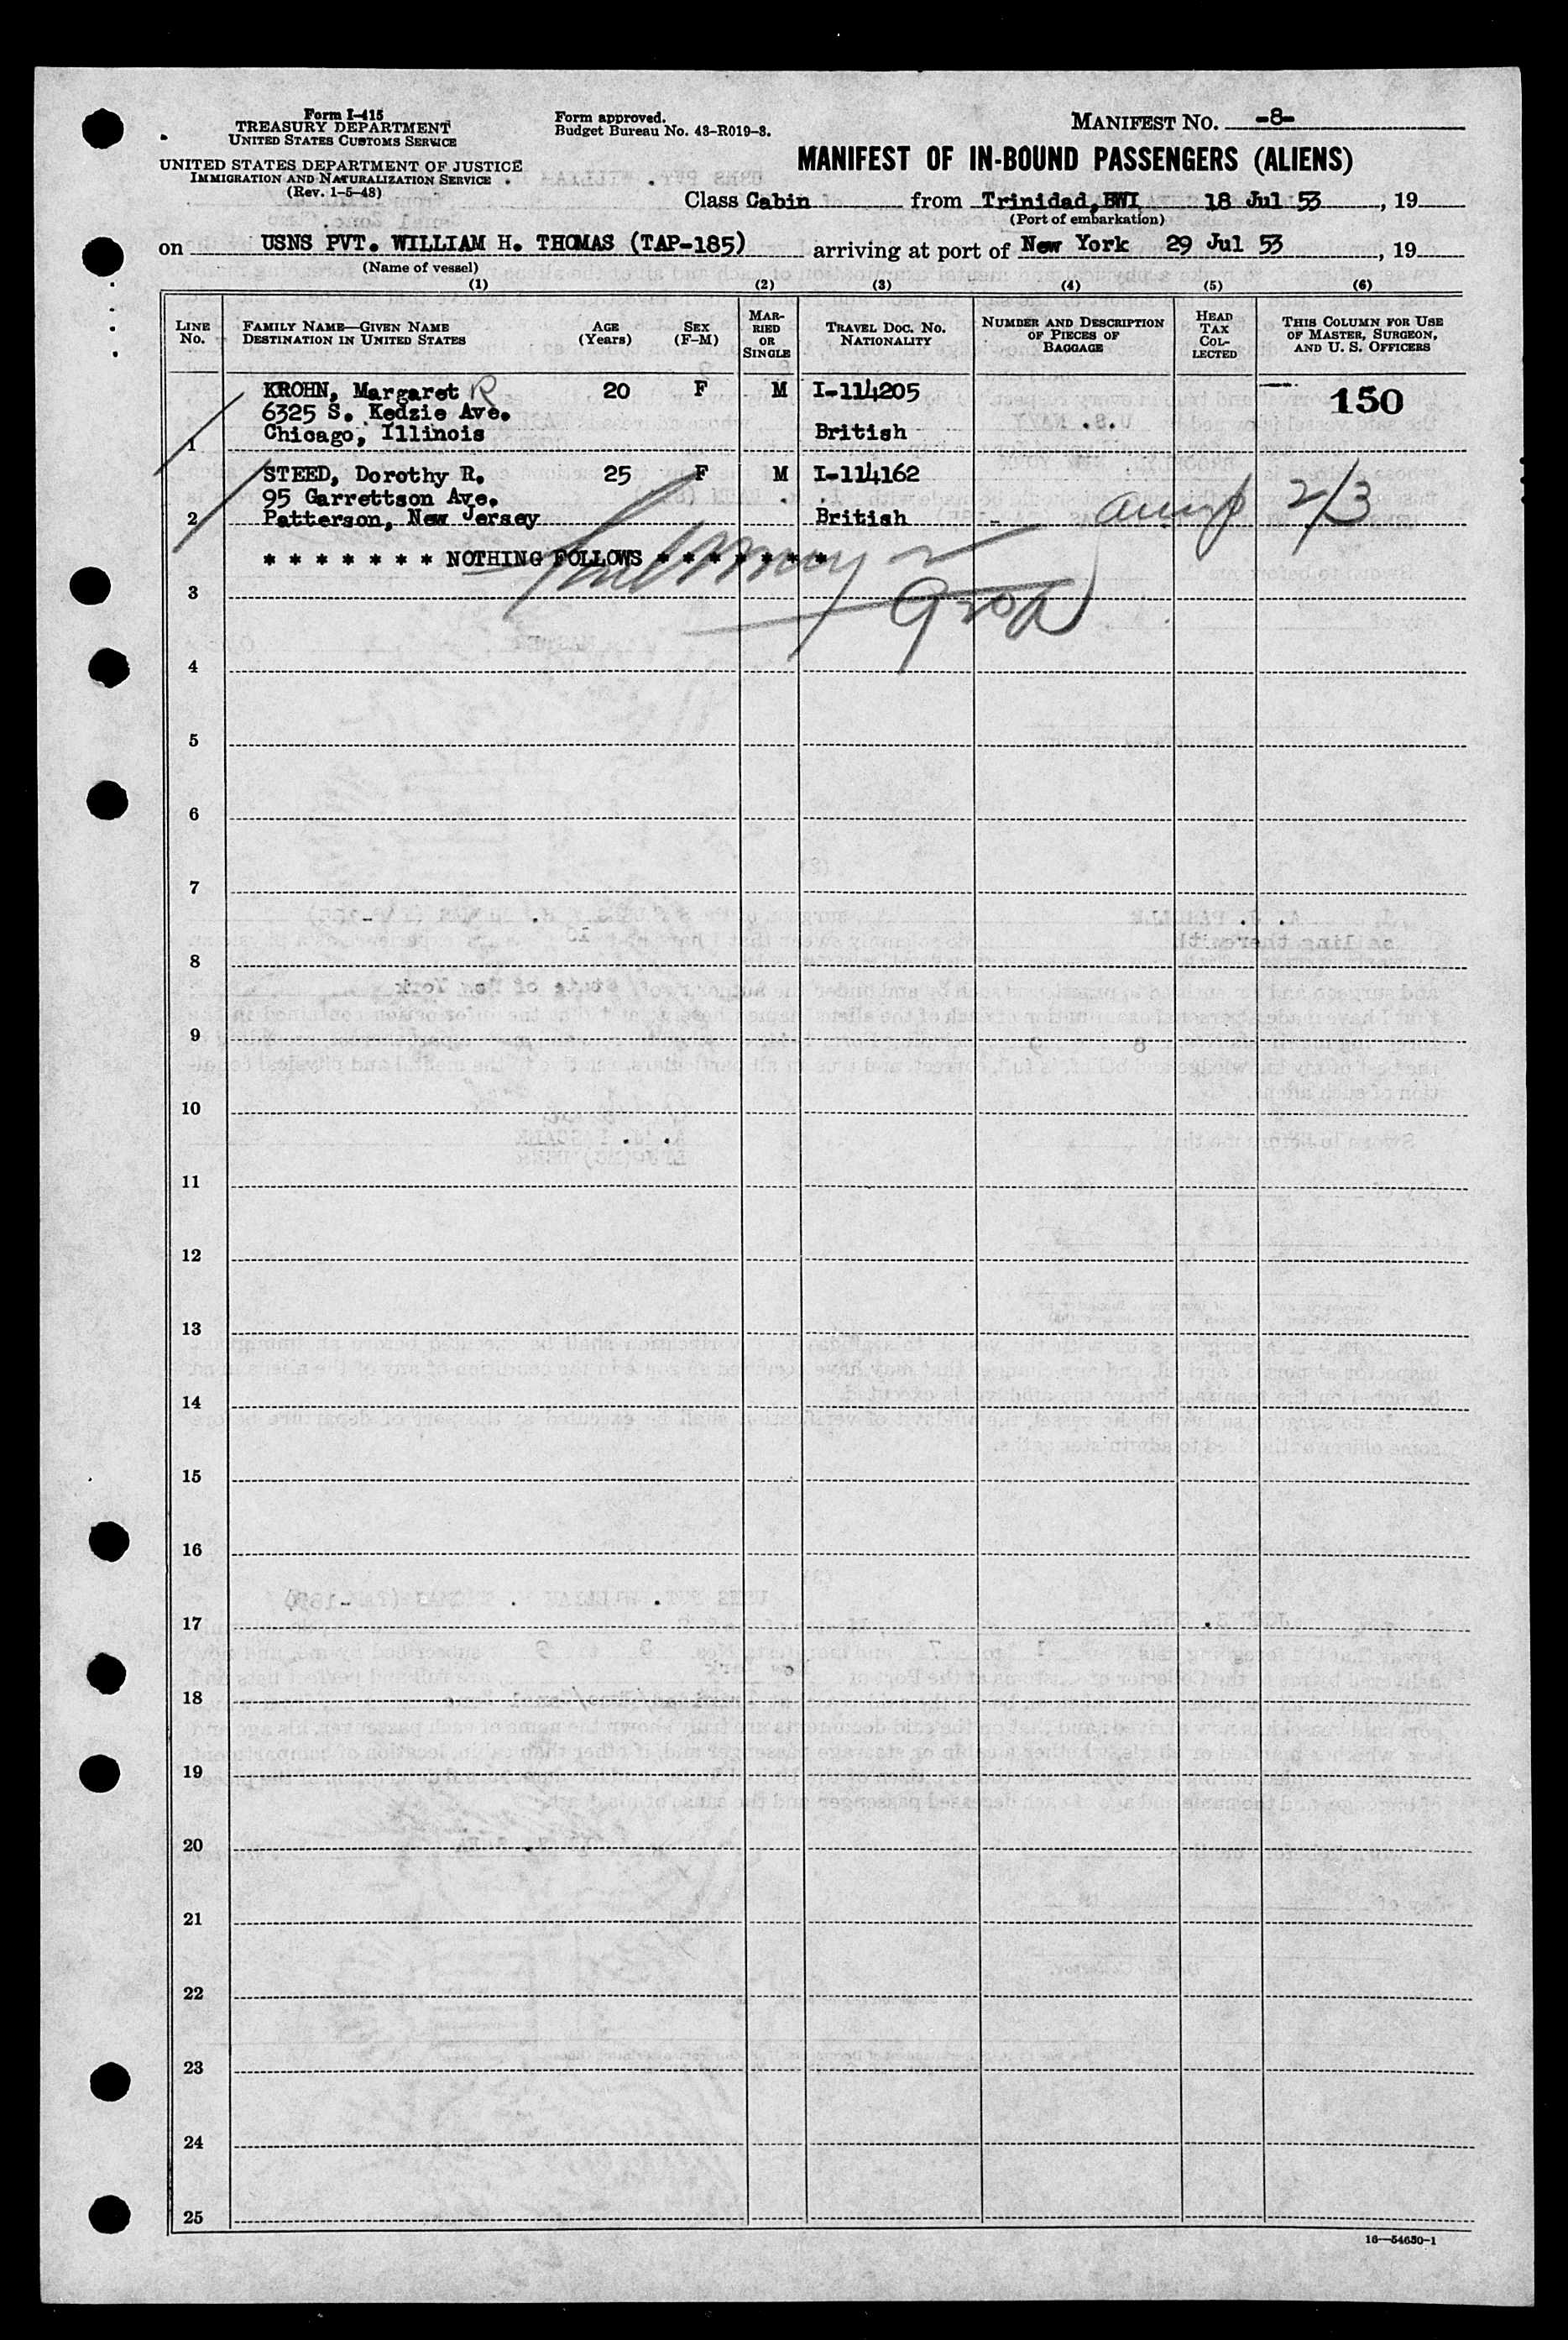 Form I-415
TREASURY DEPARTMENT
UNITED STATES CUSTOMS SERVICE
UNITED STATES DEPARTMENT OF JUSTICE
IMMIGRATION AND NATURALIZATION SERVICE
(Rev. 1-5-48)
Form approved.
Budget Bureau No. 43-R019-3.
MANIFEST NO. -8-
MANIFEST OF IN-BOUND PASSENGERS (ALIENS)
Class Cabin from Trinidad, BWI 18 Jul 53, 19
(Port of embarkation)
on USNS PVT. WILLIAM H. THOMAS (TAP-185) arriving at port of New York 29 Jul 53, 19
(Name of vessel)
(1) (2) (3) (4) (5) (6)
LINE No.
FAMILY NAME—GIVEN NAME
DESTINATION IN UNITED STATES
AGE (Years)
SEX (F-M)
MARRIED OR SINGLE
TRAVEL DOC. NO.
NATIONALITY
NUMBER AND DESCRIPTION OF PIECES OF BAGGAGE
HEAD TAX COLLECTED
THIS COLUMN FOR USE OF MASTER, SURGEON, AND U. S. OFFICERS
KROHN, Margaret R 20 F M I-114205 150
6325 S. Kedzie Ave.
1 Chicago, Illinois British
STEED, Dorothy R. 25 F M I-114162
95 Garrettson Ave. 2/3
2 Patterson, New Jersey British -
* * * * * * * NOTHING FOLLOWS * * * * * * *
3
4
5
6
7
8
9
10
11
12
13
14
15
16
17
18
19
20
21
22
23
24
25
16—54630-1